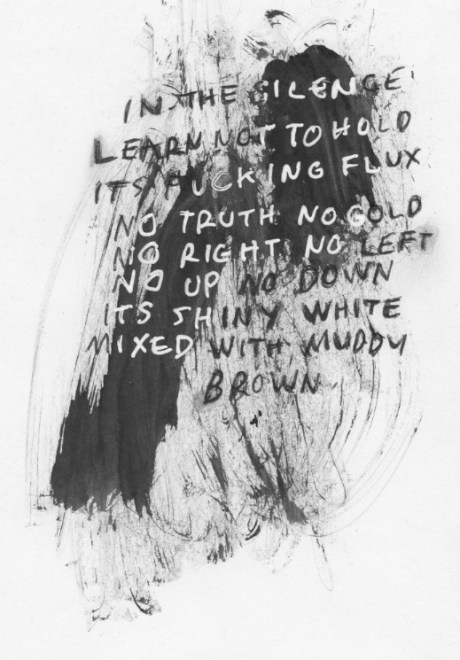 IN THE SILENCE
LEARN NOT TO HOLD
ITS FUCKING FLUX
NO TRUTH NO GOLD
NO RIGHT NO LEFT
NO UP NO DOWN
ITS SHINY WHITE
MIXED WITH MUDDY
BROWN